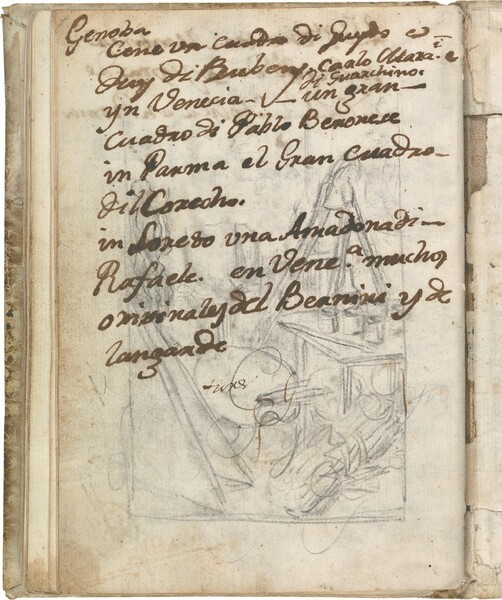 Genoba
Cene un cuadro di Guydo e
duy di Rubens, Carlo Mara.i e
di Guarchino.
yn Venecia - un gran
cuadro di Pablo Beronese
in Parma el Gran cuadro
dil Corecho.
in Loreto una Amadona di
Rafaele. en Vene.a muchos
originales del Bernini y de
langarde